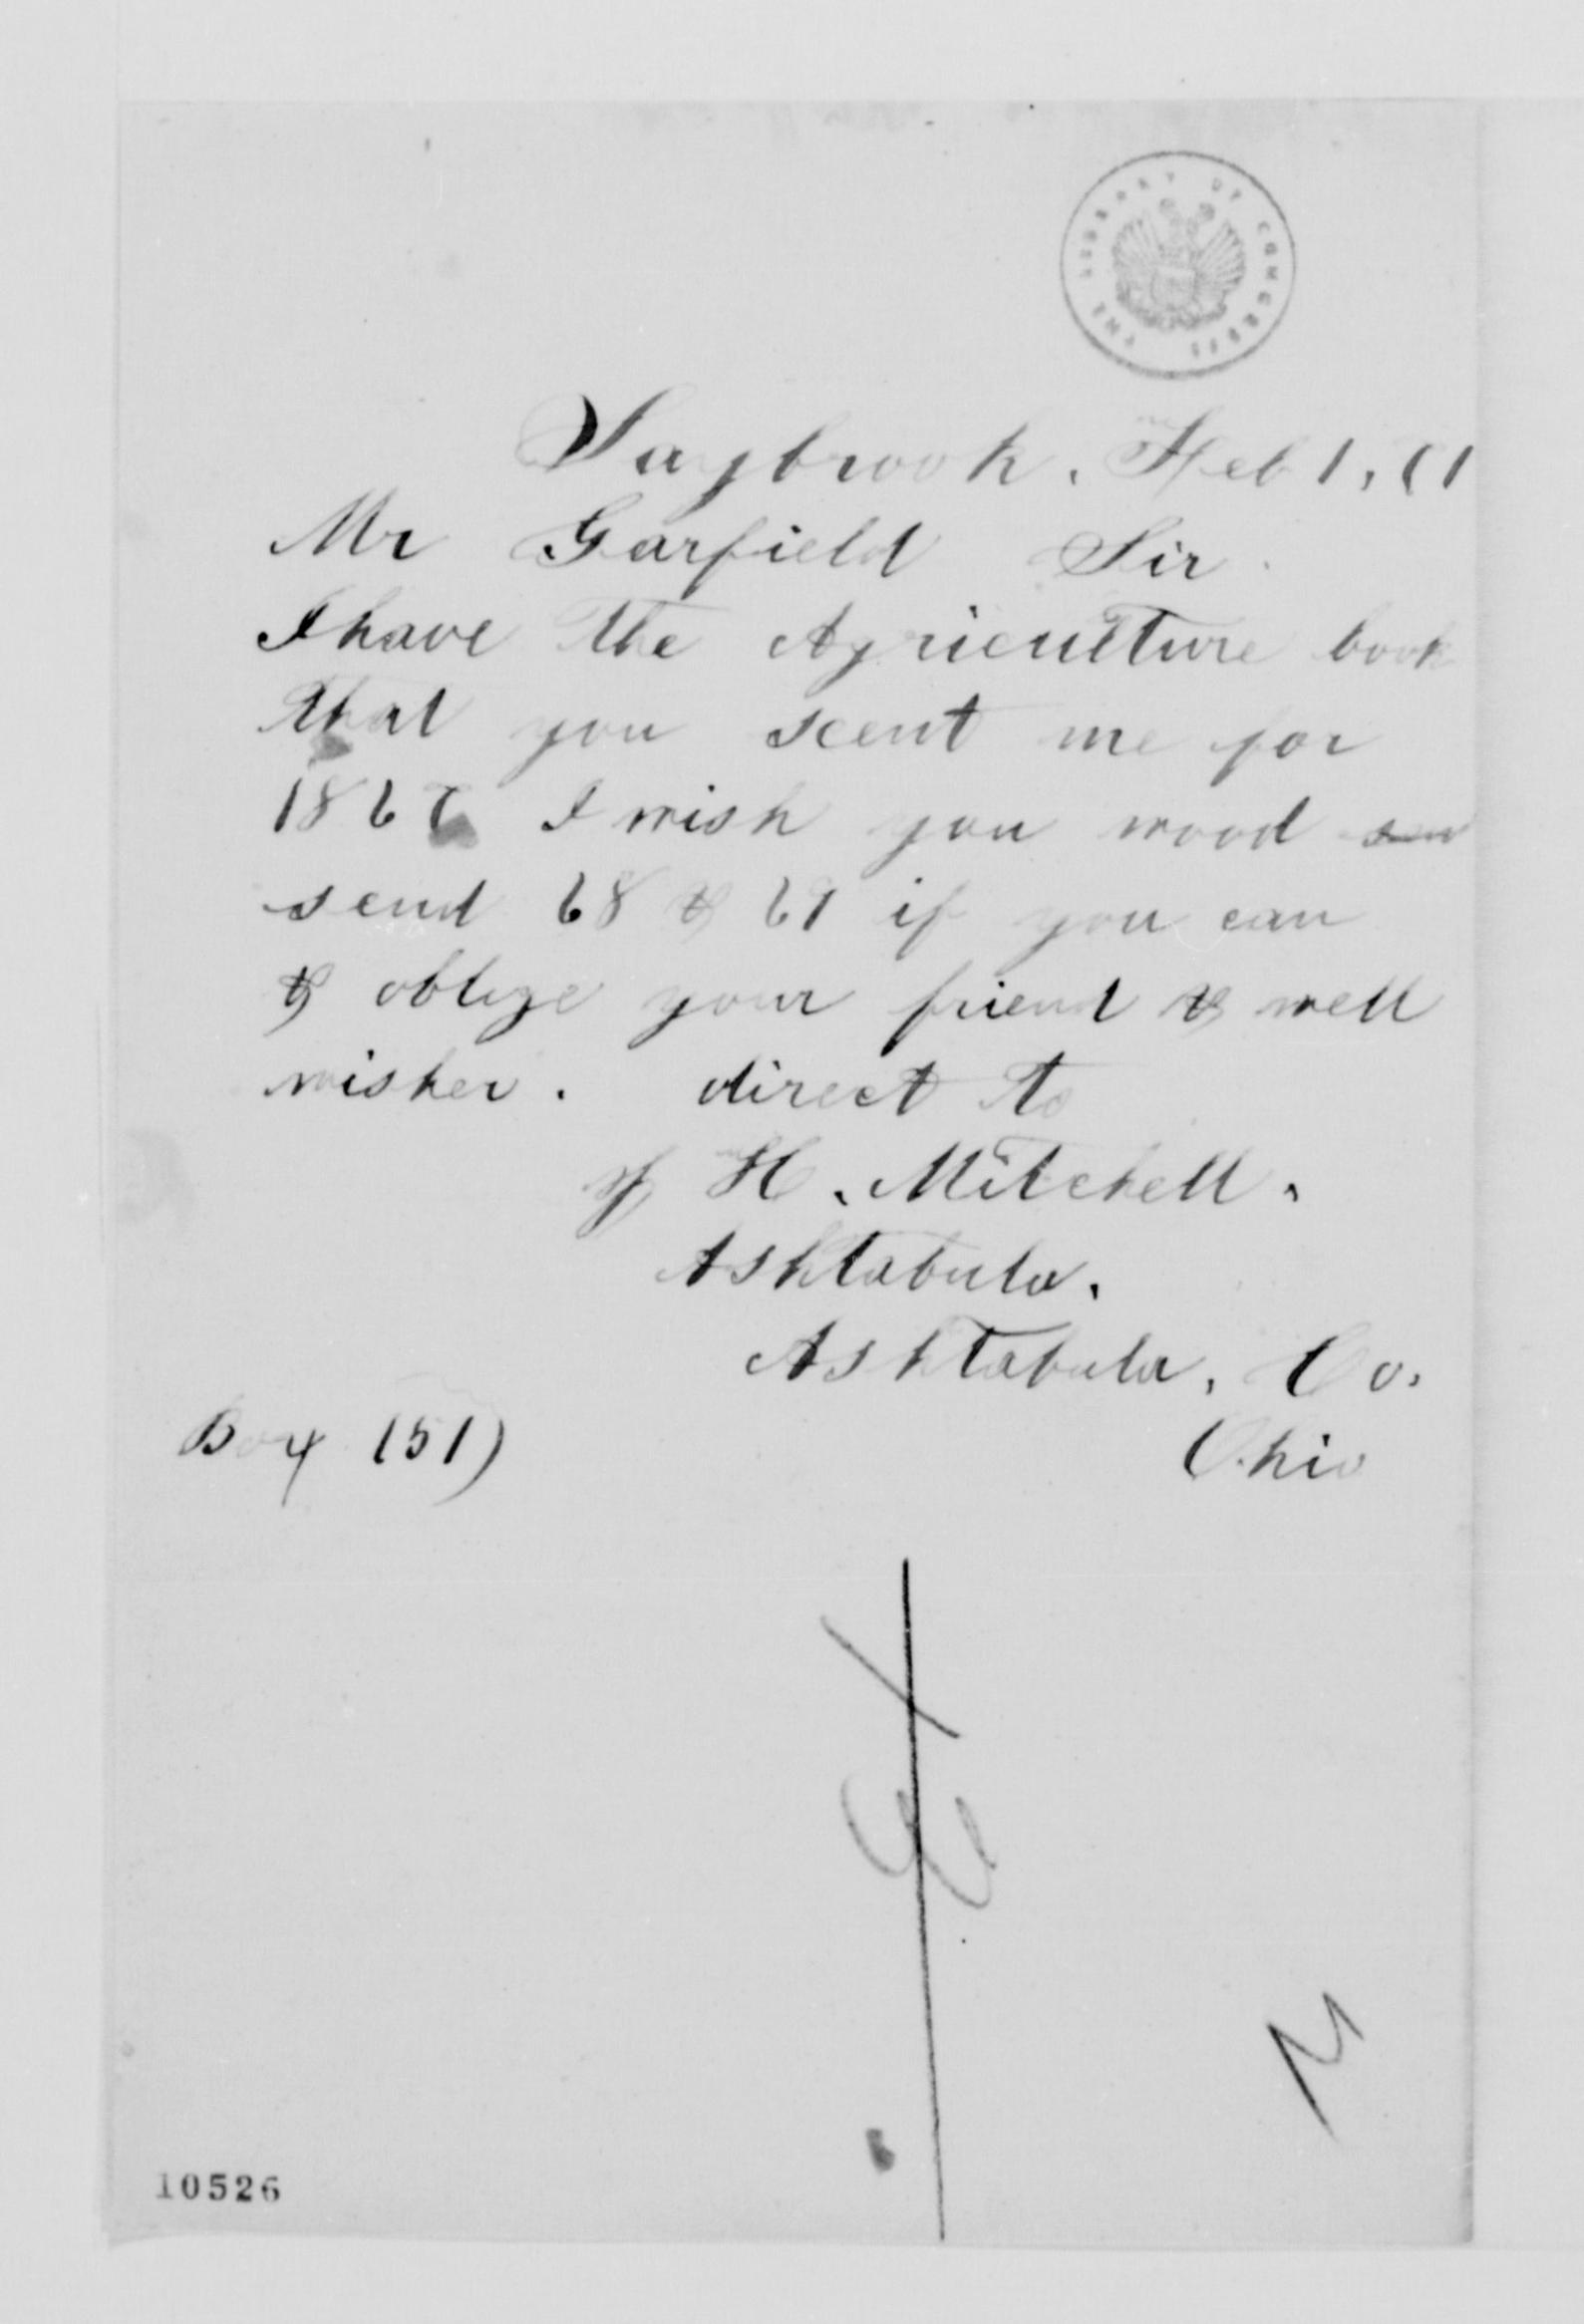 THE LIBRARY OF CONGRESS
Saybrook, Feb 1, 71
Mr Garfield Sir.
I have the Agriculture book
that you scent me for
1867 I wish you wood
send 68 & 69 if you can
& oblige your friend & well
wisher. direct to
H. Mitchell.
Ashtabula.
Ashtabula, Co.
Ohio
Box 151)
M
10526